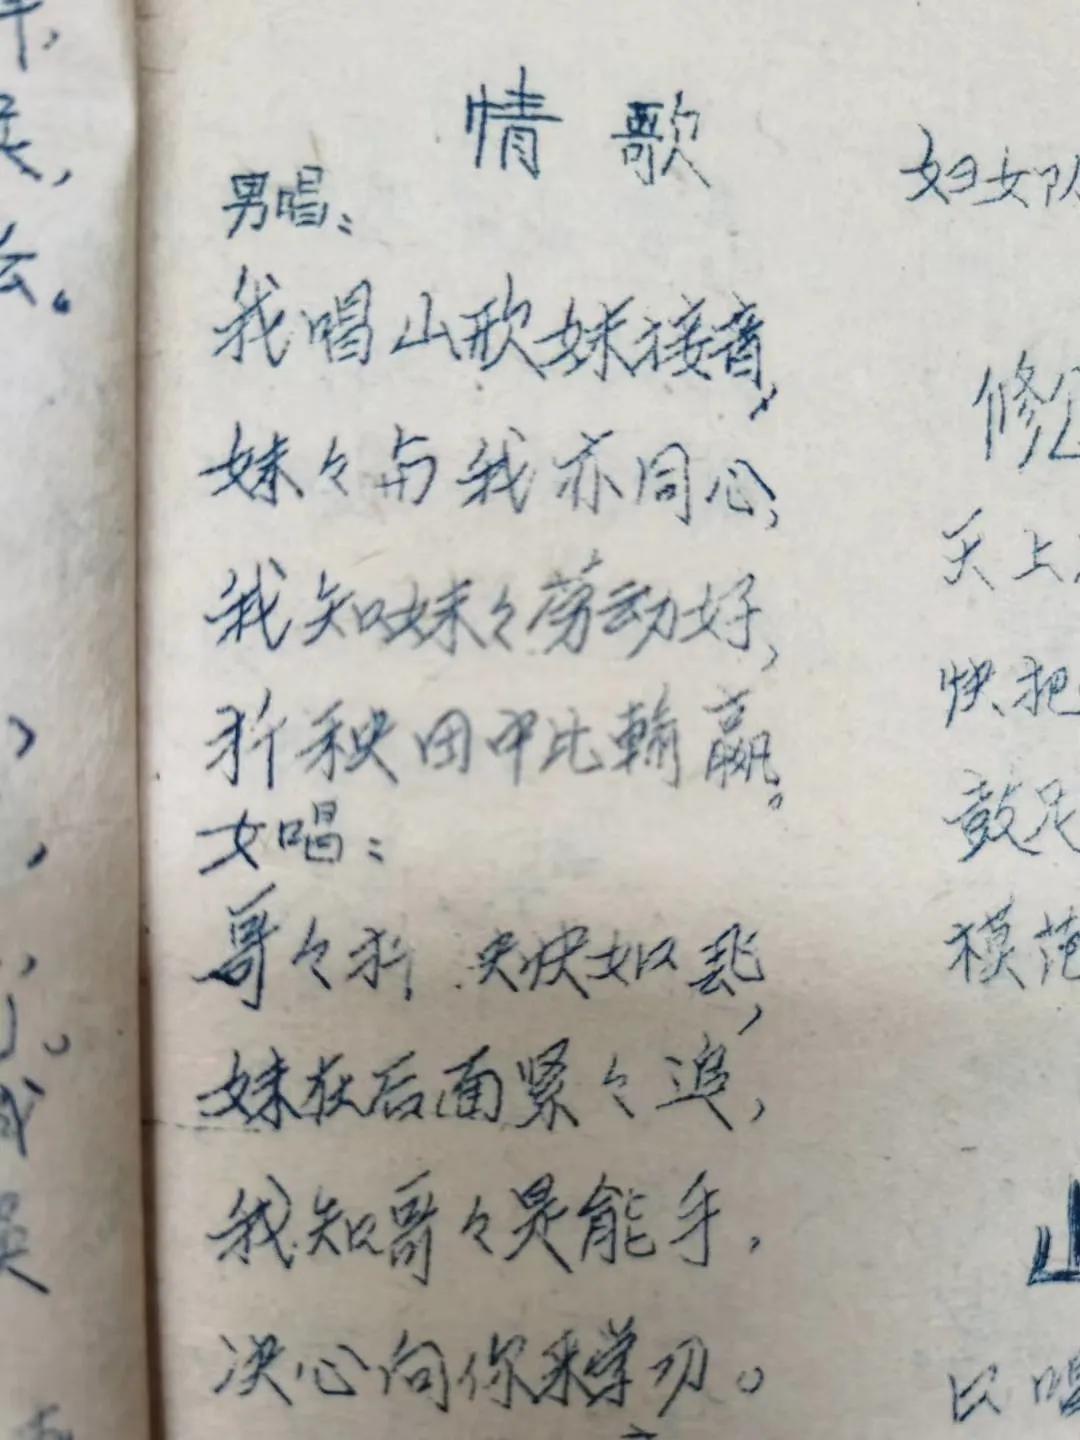 情歌
男唱：
我唱山歌妹接音，
妹々与我亦同心，
我知妹々劳动好，
秧田中比输赢。
女唱：
哥々快如飞，
妹在后面紧々追，
我知哥々是能手，
决心向你来学习。
妇女
修
天上
快把
鼓足
模范
山
唱